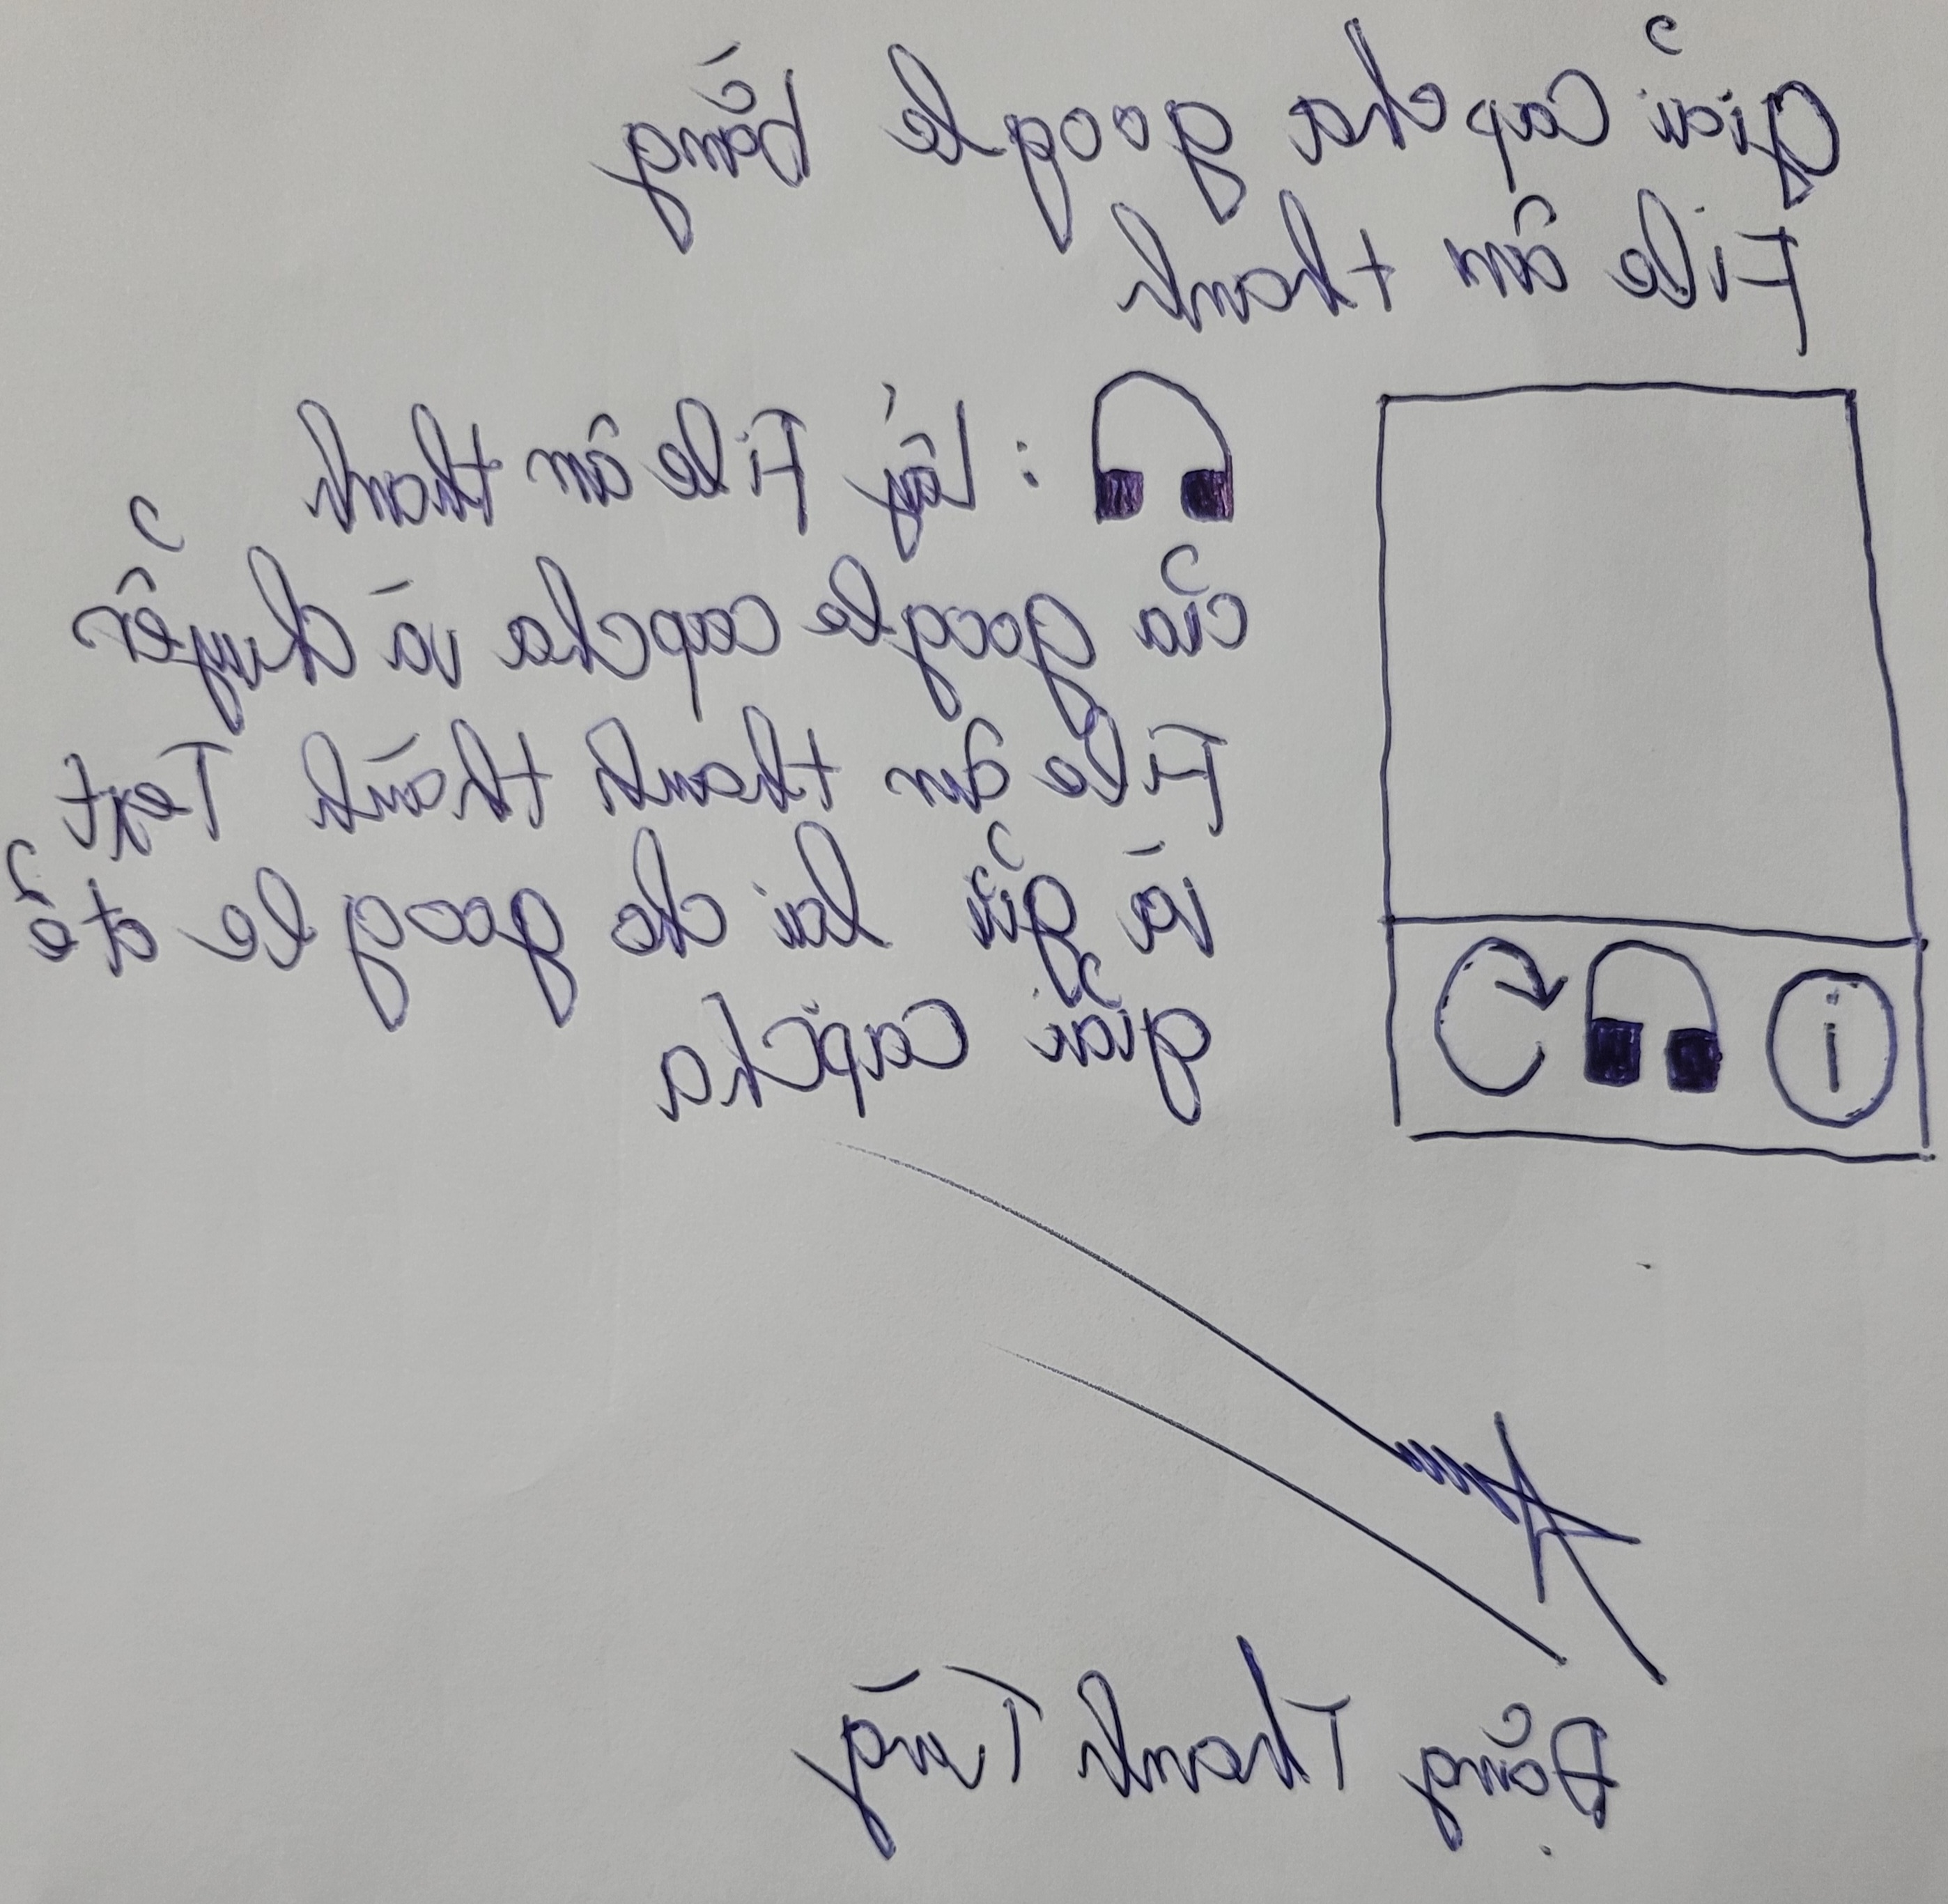 Giải Capcha google bằng
File âm thanh
: lấy File âm thanh
của google capcha và chuyển
File âm thanh thành Text
và gửi lại cho google để
giải capcha
i
Đặng Thanh Tùng